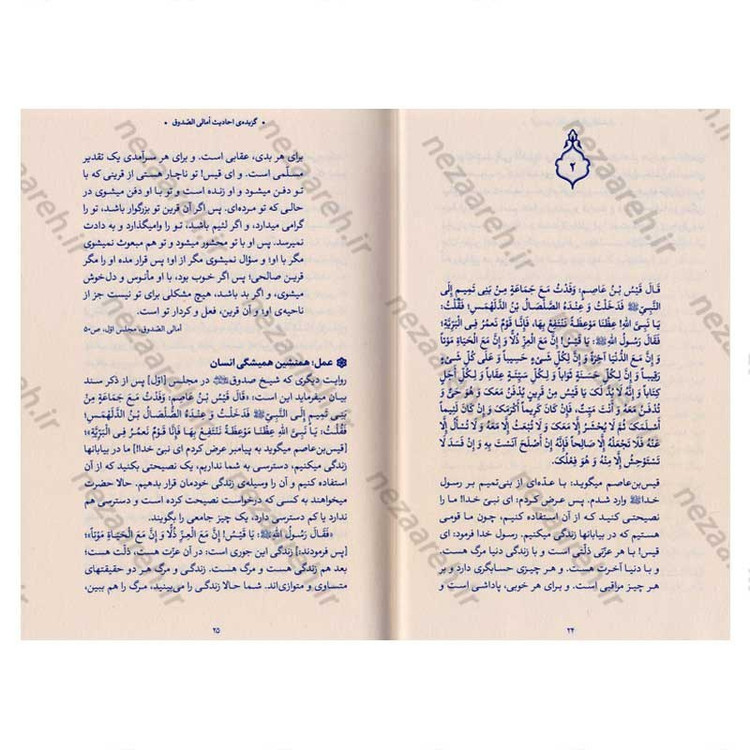 ۲
قالَ قَیْسُ بْنُ عاصِمٍ: وَفَدْتُ مَعَ جَماعَةٍ مِنْ بَنِی تَمِیمٍ إِلَی
النَّبِیِّ ﷺ فَدَخَلْتُ وَ عِنْدَهُ الصَّلْصالُ بْنُ الدَّلَهْمَسِ؛ فَقُلْتُ:
یا نَبِیَّ اللهِ! عِظْنا مَوْعِظَةً نَنْتَفِعُ بِها، فَإِنَّا قَوْمٌ نَعْمُرُ فِی الْبَرِّیَّةِ؛
فَقالَ رَسُولُ اللهِ ﷺ: یا قَیْسُ! إِنَّ مَعَ الْعِزِّ ذُلًّا وَ إِنَّ مَعَ الْحَیاةِ مَوْتاً
وَ إِنَّ مَعَ الدُّنْیا آخِرَةً وَ إِنَّ لِکُلِّ شَیْءٍ حَسِیباً وَ عَلَی کُلِّ شَیْءٍ
رَقِیباً وَ إِنَّ لِکُلِّ حَسَنَةٍ ثَواباً وَ لِکُلِّ سَیِّئَةٍ عِقاباً وَ لِکُلِّ أَجَلٍ
کِتاباً وَ إِنَّهُ لا بُدَّ لَکَ یا قَیْسُ مِنْ قَرِینٍ یُدْفَنُ مَعَکَ وَ هُوَ حَیٌّ وَ
تُدْفَنُ مَعَهُ وَ أَنْتَ مَیِّتٌ، فَإِنْ کانَ کَرِیماً أَکْرَمَکَ وَ إِنْ کانَ لَئِیماً
أَسْلَمَکَ ثُمَّ لا یُحْشَرُ إِلَّا مَعَکَ وَ لا تُبْعَثُ إِلَّا مَعَهُ وَ لا تُسْأَلُ إِلَّا
عَنْهُ فَلا تَجْعَلْهُ إِلَّا صالِحاً فَإِنَّهُ إِنْ أَصْلَحَ آنَسْتَ بِهِ وَ إِنْ فَسَدَ لا
تَسْتَوْحِشُ إِلَّا مِنْهُ وَ هُوَ فِعْلُکَ.
قیس‌بن‌عاصم میگوید: با عدّه‌ای از بنی‌تمیم بر رسول
خدا ﷺ وارد شدم. پس عرض کردم: ای نبیّ خدا! ما را
نصیحتی کنید کـه از آن استفاده کنیم، چون ما قومی
هستیم که در بیابانها زندگی میکنیم. رسول خدا فرمود: ای
قیس! با هر عزّتی ذلّتی است و با زندگی دنیا مرگ هست.
و با دنیا آخرت هست. و هر چیزی حسابگری دارد و بر
هر چیز مراقبی است. و برای هر خوبی، پاداشی است و
۲۴
• گزیده‌ی احادیث امالی الصّدوق •
برای هر بدی، عقابی است. و برای هر سرآمدی یک تقدیر
مسلّمی است. و ای قیس! تو ناچار هستی از قرینی که با
تو دفن میشود و او زنده است و تو با او دفن میشوی در
حالی که تو مرده‌ای. پس اگر آن قرین تو بزرگوار باشد، تو را
گرامی میدارد، و اگر لئیم باشد، تـو را وامیگذارد و به دادت
نمیرسد. پس او با تو محشور میشود و تو هم مبعوث نمیشوی
مگر با او؛ و سؤال نمیشوی مگر از او؛ پس قرار مده او را مگر
قرین صالحی؛ پس اگر خوب بود، با او مأنوس و دل‌خوش
میشوی، و اگر بد باشد، هیچ مشکلی برای تو نیست جز از
ناحیه‌ی او؛ و آن قرین، فعل و کردار تو است.
امالی الصّدوق، مجلس اوّل، ص۵۰
عمل؛ همنشین همیشگی انسان
روایت دیگری که شیخ صدوق در مجلس [اوّل] پس از ذکر سند
بیان میفرماید این است: «قالَ قَیْسُ بْنُ عاصِمٍ: وَفَدْتُ مَعَ جَماعَةٍ مِنْ
بَنِی تَمِیمٍ إِلَی النَّبِیِّ ﷺ فَدَخَلْتُ وَ عِنْدَهُ الصَّلْصالُ بْنُ الدَّلَهْمَسِ؛
فَقُلْتُ: یا نَبِیَّ اللهِ عِظْنا مَوْعِظَةً نَنْتَفِعُ بِها فَإِنَّا قَوْمٌ نَعْمُرُ فِی الْبَرِّیَّةِ»؛
[قیس‌بن‌عاصم میگوید به پیامبر عرض کردم ای نبیّ خدا!] ما در بیابانها
زندگی میکنیم، دسترسی به شما نداریم، یک نصیحتی بکنید که از آن
استفاده کنیم و آن را وسیله‌ی زندگی خودمان قرار بدهیم. حالا حضرت
میخواهند به کسی که درخواست نصیحت کرده است و دسترسی هم
ندارد یا کم دسترسی دارد، یک چیز جامعی را بگویند.
«فَقالَ رَسُولُ اللهِ ﷺ: یا قَیْسُ! إِنَّ مَعَ الْعِزِّ ذُلًّا وَ إِنَّ مَعَ الْحَیاةِ مَوْتاً»؛
[پس فرمودند:] زندگی این جوری است: در آن عزّت هست، ذلّت هست؛
بعد هم زندگی هست و مرگ هست. زندگی و مرگ هر دو حقیقتهای
متساوی و متوازی‌اند. شما حالا زندگـی را می‌بینید، مرگ را هم ببین،
۲۵
nezaareh.ir